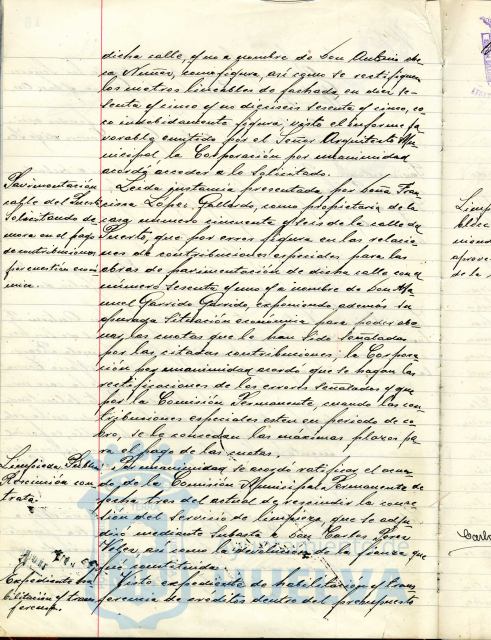 dicha calle, y no a nombre de Don Antonio
ca Núñez, como figura, así como se rectifiquen
los metros lineables de fachada, en diez se-
senta y cinco y no dieciseis sesenta y cinco, co-
mo indebidamente figura; visto el informe fa-
vorable emitido por el Señor Arquitecto Mu-
nicipal, la Corporación por unanimidad
acordó acceder a lo solicitado.
Pavimentación
calle del Puerto
Solicitando de-
mora en el pago
de contribuciones
por cuestión econó-
mica.
Leida instancia presentada por Doña Fran-
cisca López Gallardo, como propietaria de la
casa número cincuenta y seis de la calle del
Puerto, que por error figura en las relacio-
nes de contribuciones especiales para las
obras de pavimentación de dicha calle con el
número sesenta y uno y a nombre de Don Ma-
nuel Garrido Garrido, exponiendo además su
apurada situación económica para poder abo-
nar las cuotas que le han sido señaladas
por las citadas contribuciones; la Corpora-
ción por unanimidad acordó que se hagan las
rectificaciones de los errores señalados y que
por la Comisión Permanente, cuando las con-
tribuciones especiales esten en periodo de co-
bro, se le concedan los máximos plazos pa-
ra el pago de las cuotas.
Limpieza Pública
Rescisión con-
trata.
Por unanimidad se acordó ratificar el acuer-
do de la Comisión Municipal Permanente de
fecha tres del actual de rescindir la conce-
sión del servicio de limpieza, que se adju-
dicó mediante subasta a Don Carlos
así como la devolución de la fianza que
fué constituida.
Expediente ha-
bilitación y trans-
ferencia.
Visto expediente de habilitación y trans-
ferencia de créditos dentro del presupuesto
HUELVA